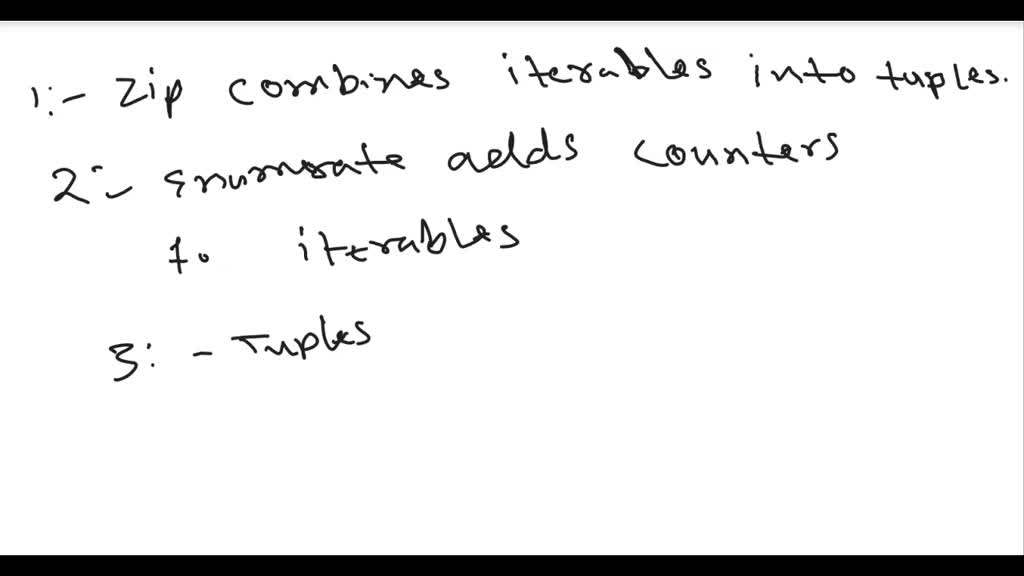 1:- Zip combines iterables into tuples.
2:- Enumerate adds counters
to iterables
3: - Tuples